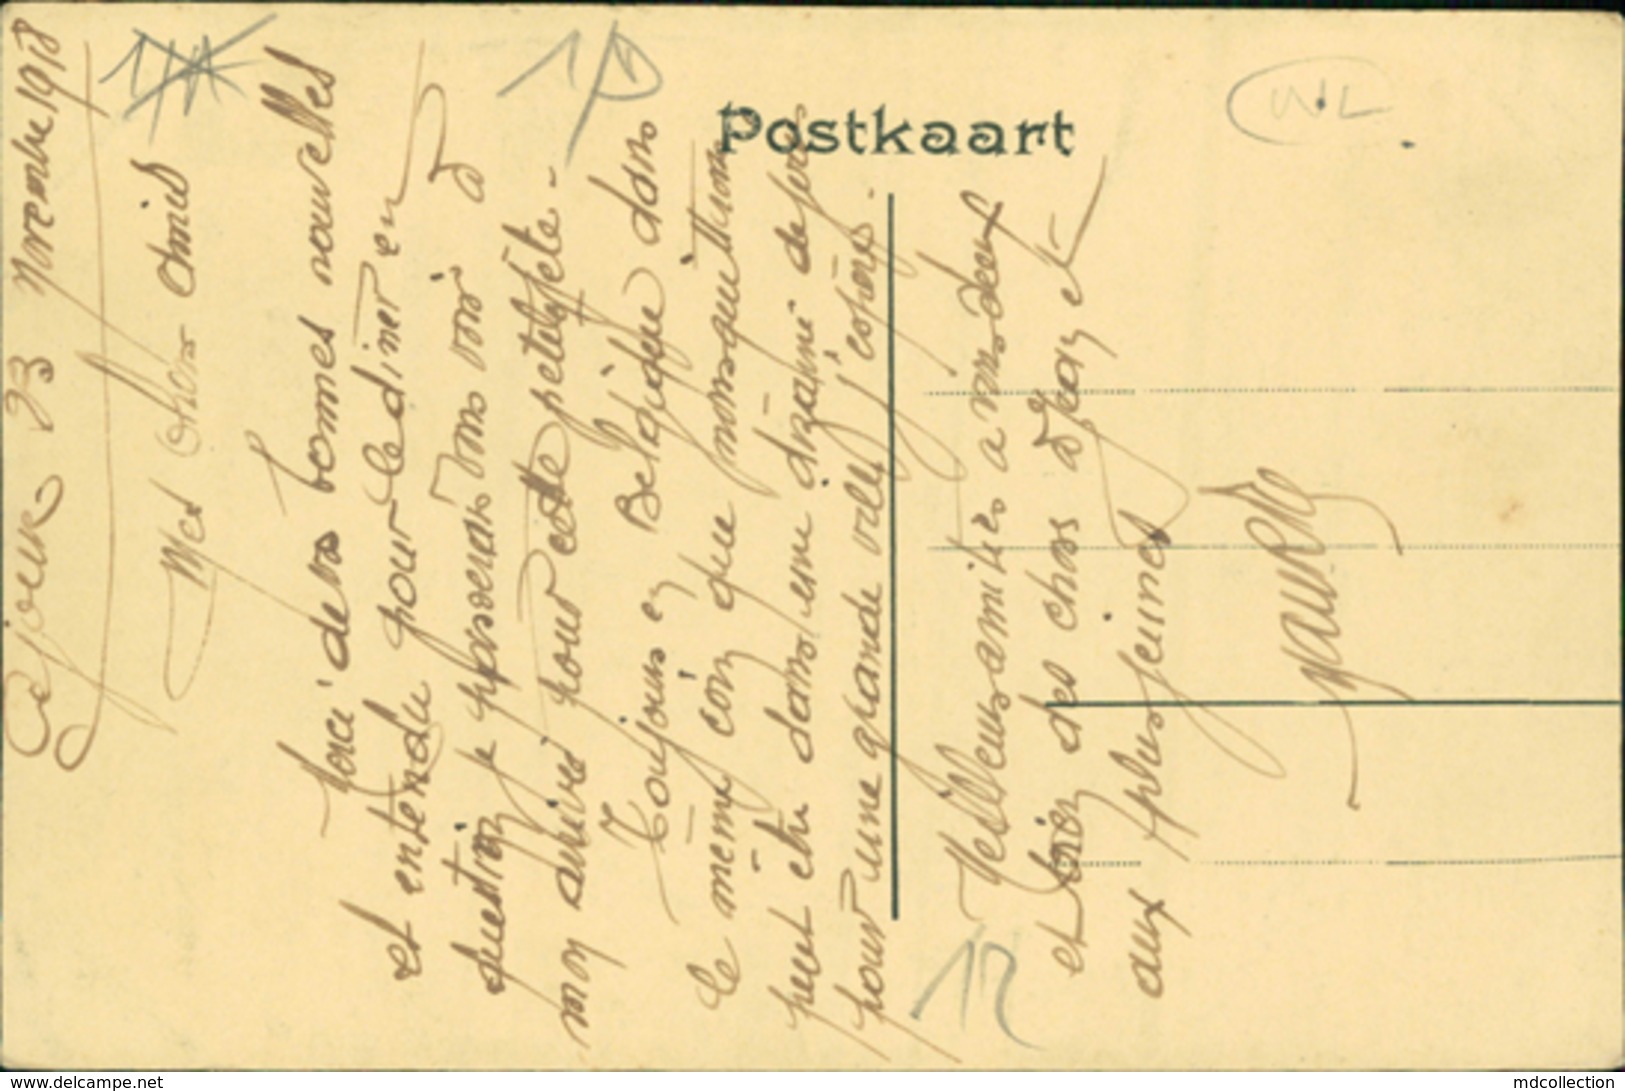 Postkaart
W.L
12
Ce jour 23 Novembre 1918
Mes chers amis
Merci de vos bonnes nouvelles
et entendu pour le diner en
question je passerais vous voir à
mon arrivée pour cette petite fête -
Toujours en Belgique dans
le même coin que nous quittrons
peut être dans une dizaine de jours
pour une grande ville j'espère.
Meilleurs amitiés a vous deux
et bien des choses à Jean et
aux plus jeunes
www.delcampe.net
mdcollection